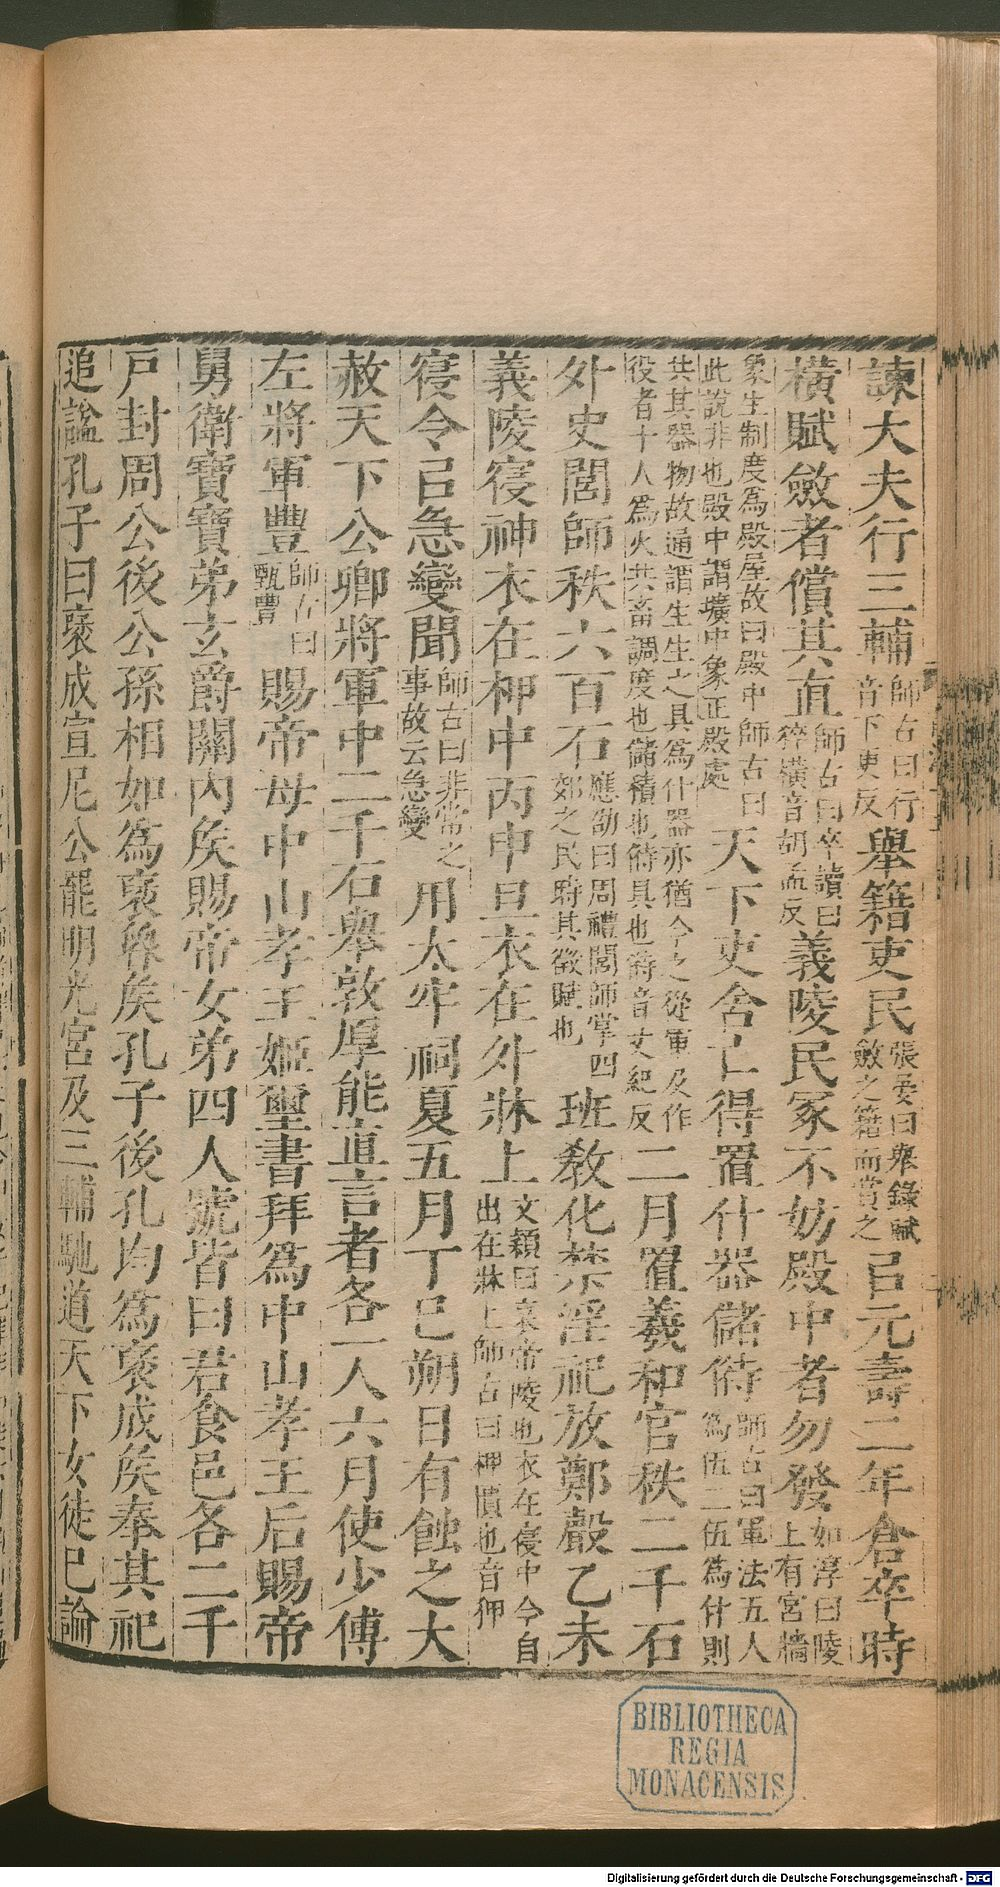 諫大夫行三輔師古曰行音下更反舉籍吏民張晏曰舉錄賦斂之籍而賞之㠯元壽二年倉卒時
橫賦斂者償其直師古曰卒讀曰猝橫音胡孟反義陵民冢不妨殿中者勿發如淳曰陵上有宮牆
象生制度爲殿屋故曰殿中師古曰此說非也殿中謂壙中象正殿處天下吏舍亡得置什器儲偫師古曰軍法五人爲伍二伍爲什則
共其器物故通謂生生之具爲什器亦猶今之從軍及作役者十人爲火共畜調度也儲積也偫具也偫音丈紀反二月置羲和官秩二千石
外史閭師秩六百石應劭曰周禮閭師掌四郊之民時其徵賦也班敎化禁淫祀放鄭聲乙未
義陵寑神衣在柙中丙申旦衣在外牀上文穎曰哀帝陵也衣在寑中今自出在牀上師古曰柙匱也音狎
寑令㠯急變聞師古曰非常之事故云急變用太牢祠夏五月丁巳朔日有蝕之大
赦天下公卿將軍中二千石舉敦厚能直言者各一人六月使少傅
左將軍豐師古曰甄豐賜帝母中山孝王姬璽書拜爲中山孝王后賜帝
舅衞寶寶弟玄爵關內矦賜帝女弟四人號皆曰君食邑各二千
戸封周公後公孫相如爲褒魯矦孔子後孔均爲褒成矦奉其祀
追謚孔子曰褒成宣尼公罷明光宮及三輔馳道天下女徒已論
BIBLIOTHECA
REGIA
MONACENSIS
Digitalisierung gefördert durch die Deutsche Forschungsgemeinschaft - DFG